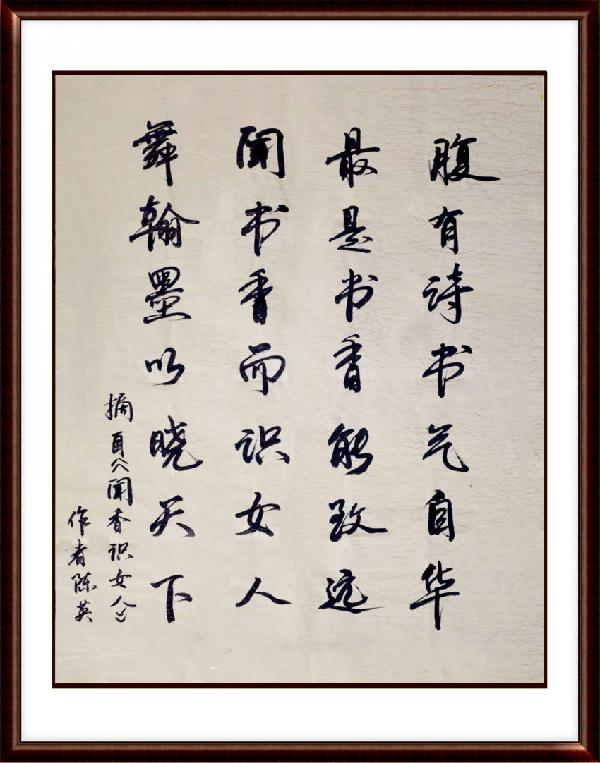 腹有诗书气自华
最是书香能致远
闻书香而识女人
舞翰墨以晓天下
摘自《闻香识女人》
作者陈英